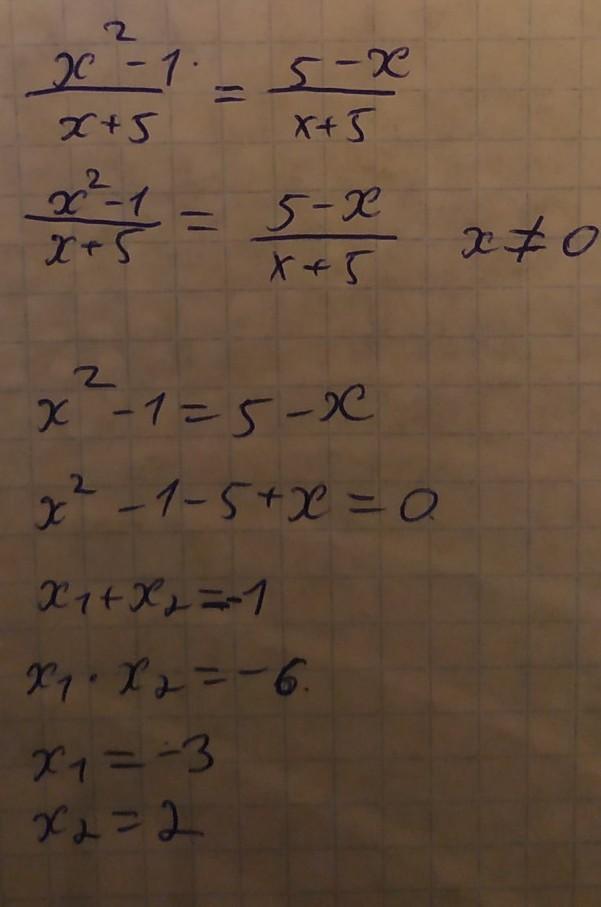 x² - 1 / x + 5 = 5 - x / x + 5
x² - 1 / x + 5 = 5 - x / x + 5 x ≠ 0
x² - 1 = 5 - x
x² - 1 - 5 + x = 0
x₁ + x₂ = -1
x₁ · x₂ = -6.
x₁ = -3
x₂ = 2